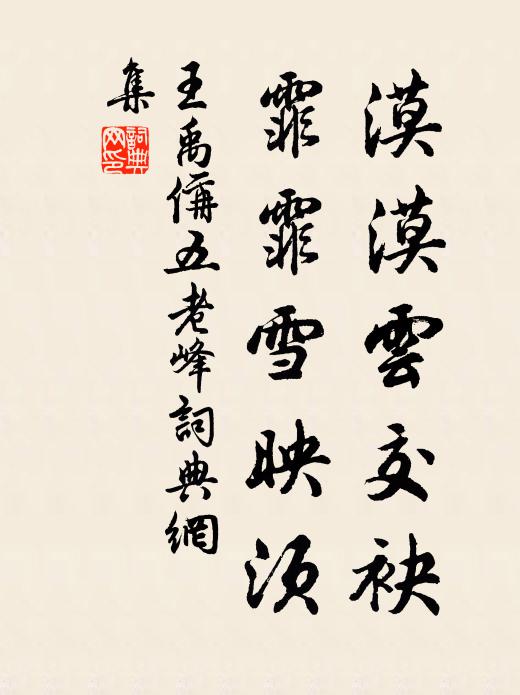 漠漠雲交袂
霏霏雪映須
王禹偁五老峰詞典網
集
詞典
网印